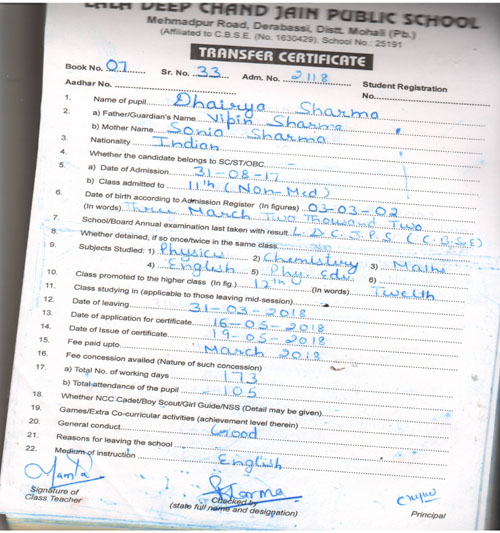 LALA DEEP CHAND JAIN PUBLIC SCHOOL
Mehmadpur Road, Derabassi, Distt. Mohali (Pb.)
(Affiliated to C.B.S.E. (No. 1630429), School No.: 25191
TRANSFER CERTIFICATE
Book No. 07 Sr. No. 33 Adm. No. 2118 Student Registration
Aadhar No. No.
1. Name of pupil Dhairya Sharma
2. a) Father/Guardian's Name Vipin Sharma
b) Mother Name Sonia Sharma
3. Nationality Indian
4. Whether the candidate belongs to SC/ST/OBC
5. a) Date of Admission 31-08-17
b) Class admitted to 11th (Non-Med)
6. Date of birth according to Admission Register (In figures) 03-03-02
(In words) Three March Two Thousand Two
7. School/Board Annual examination last taken with result L.D.C.J.P.S (C.B.S.E)
8. Whether detained, if so once/twice in the same class
9. Subjects Studied: 1) Physics 2) Chemistery 3) Maths
4) English 5) Phy. Edu 6)
10. Class promoted to the higher class (In fig.) 12th (In words) Twelth
11. Class studying in (applicable to those leaving mid-session)
12. Date of leaving 31-03-2018
13. Date of application for certificate 16-05-2018
14. Date of Issue of certificate 19-05-2018
15. Fee paid upto March 2018
16. Fee concession availed (Nature of such concession)
17. a) Total No. of working days 173
b) Total attendance of the pupil 105
18. Whether NCC Cadet/Boy Scout/Girl Guide/NSS (Detail may be given)
19. Games/Extra Co-curricular activities (achievement level therein)
20. General conduct Good
21. Reasons for leaving the school
22. Medium of instruction English
Mamta Sharma
Signature of Checked by
Class Teacher (state full name and designation) Principal